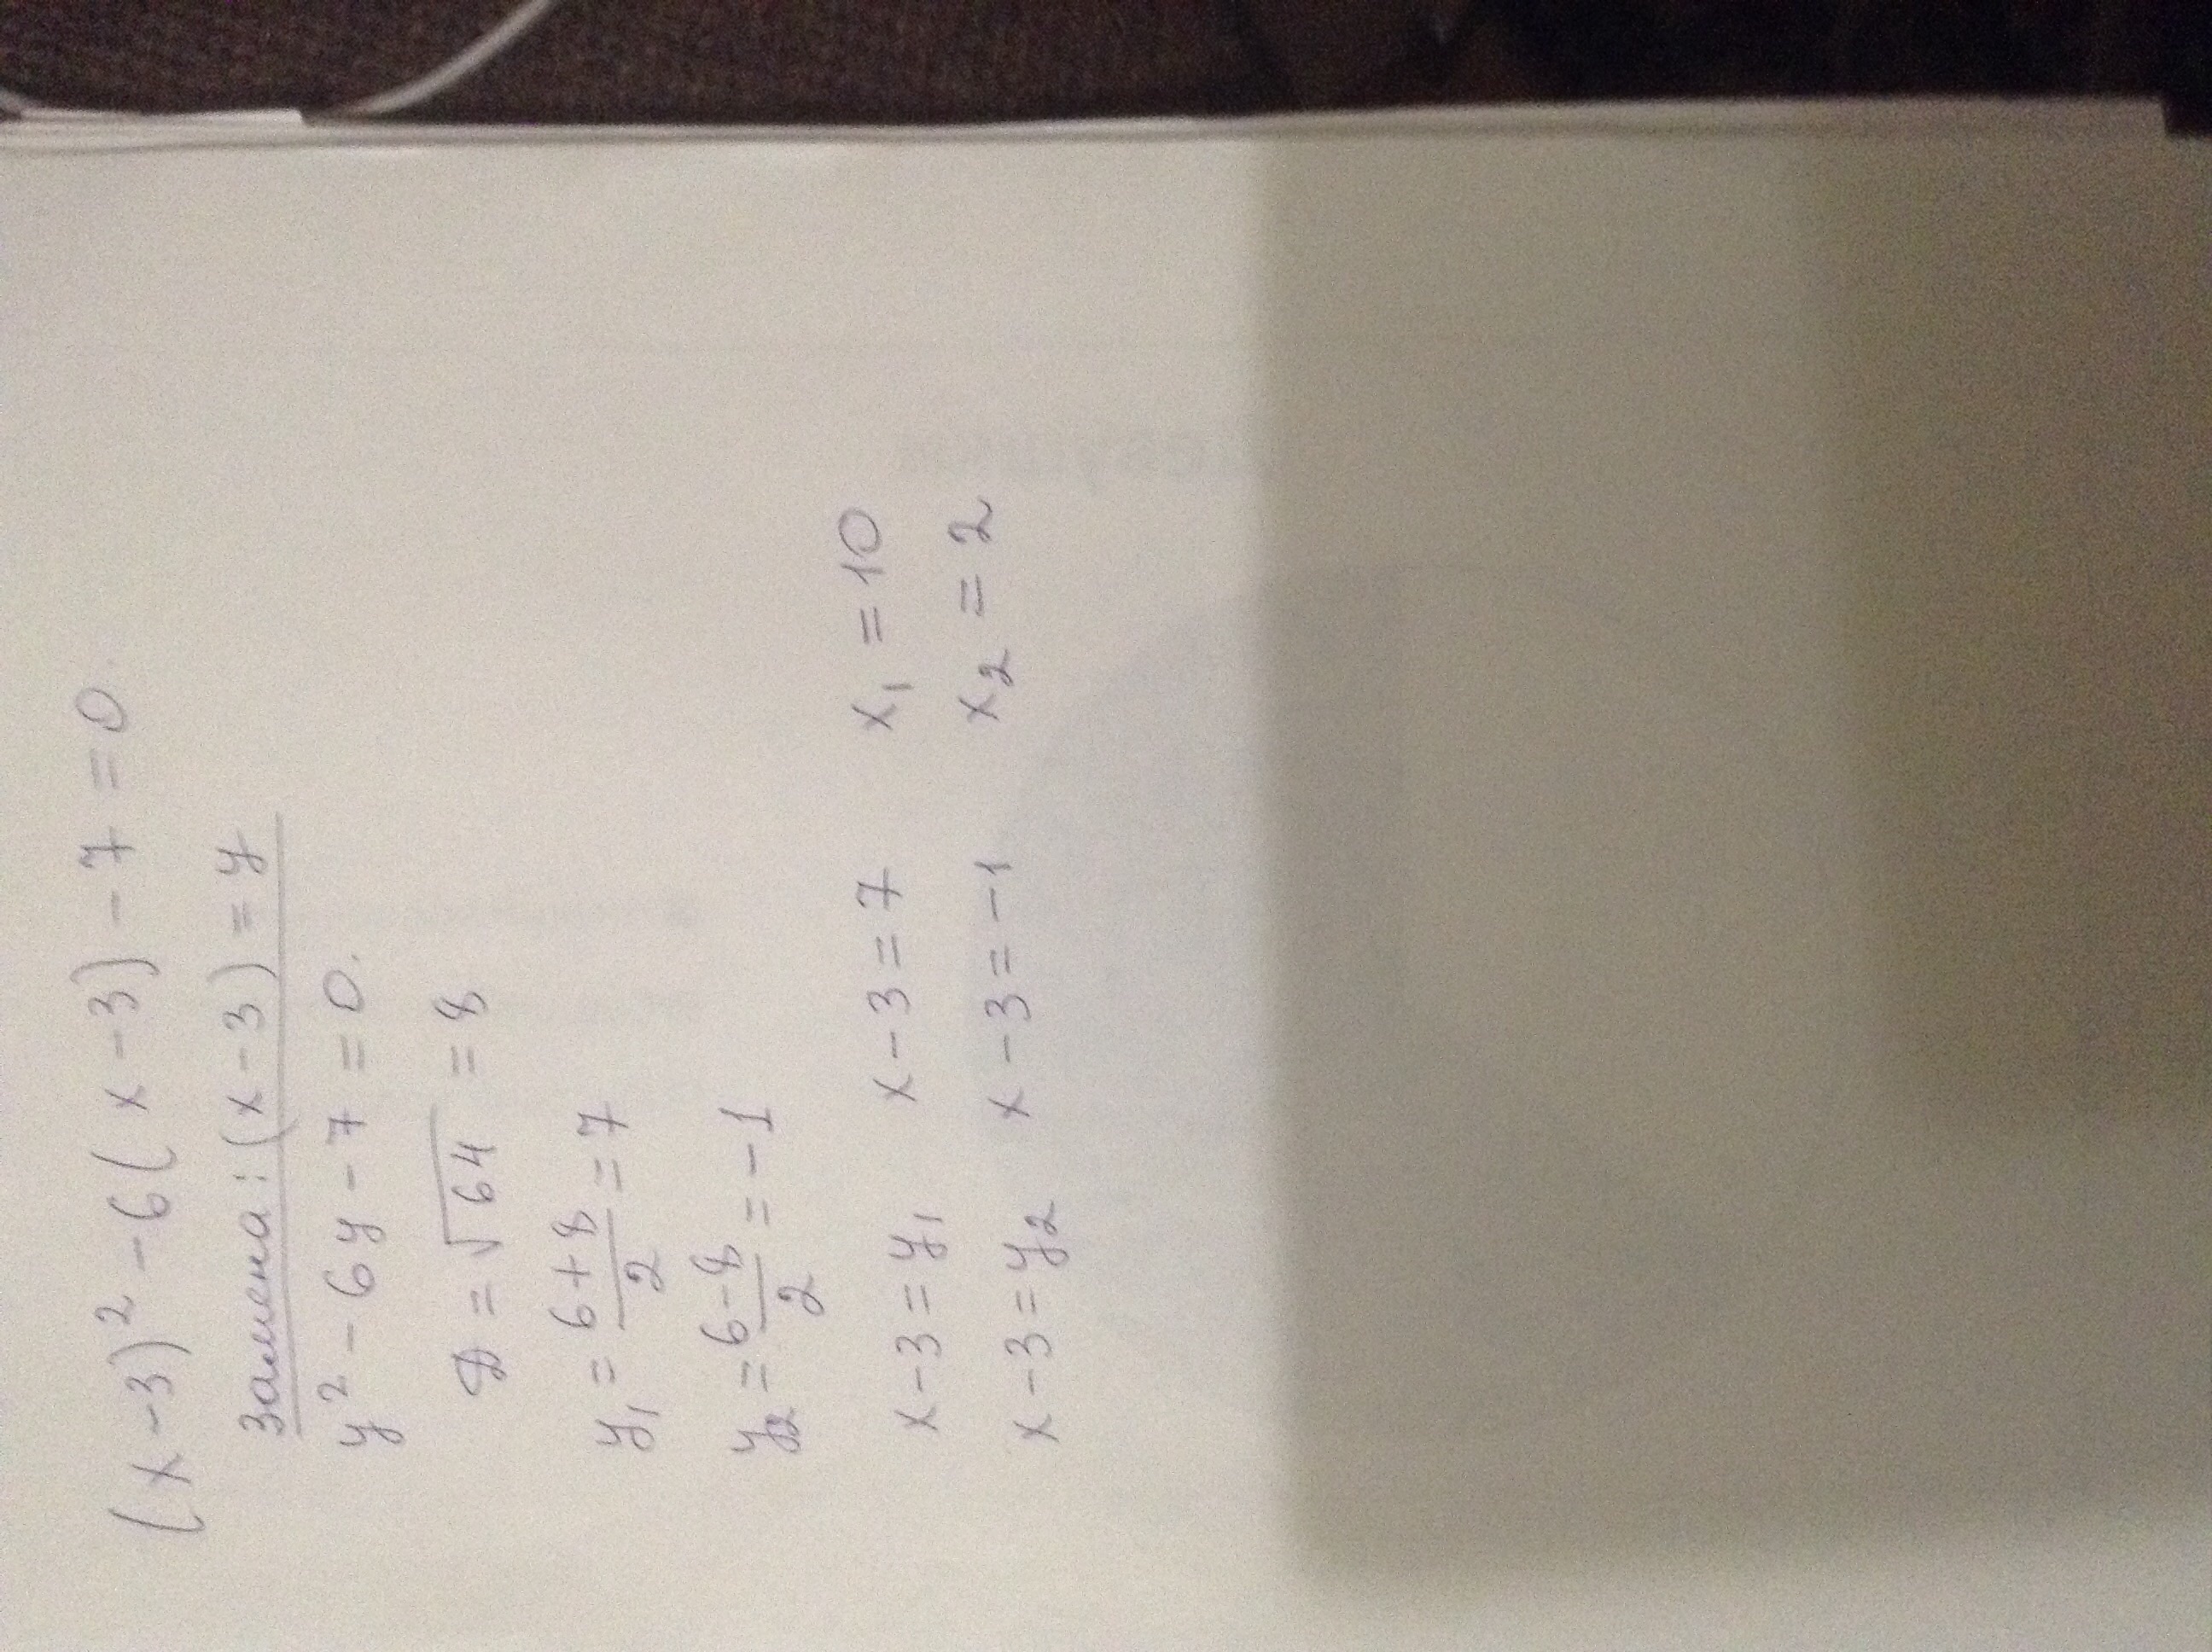 (x-3)² - 6(x-3) - 7 = 0.
Замена: (x-3) = y
y² - 6y - 7 = 0.
D = √64 = 8
y₁ = (6+8)/2 = 7
y₂ = (6-8)/2 = -1
x-3 = y₁ x-3 = 7 x₁ = 10
x-3 = y₂ x-3 = -1 x₂ = 2